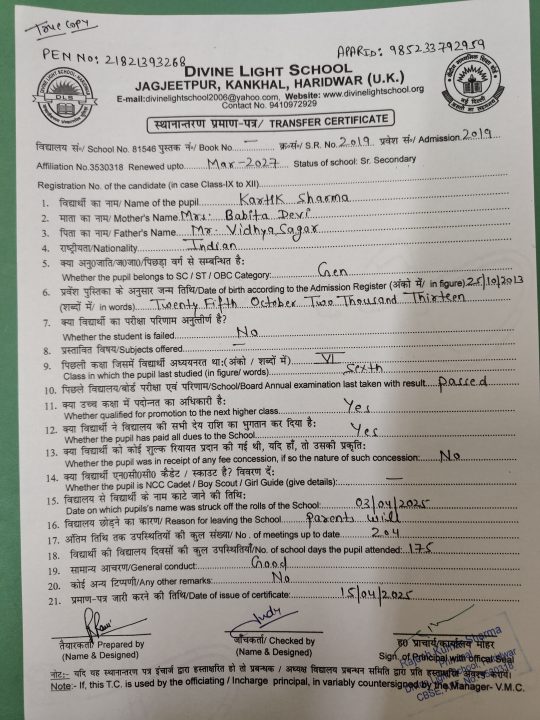 True Copy
PEN No: 21821393268
APARID: 985233792959
DIVINE LIGHT SCHOOL
JAGJEETPUR, KANKHAL, HARIDWAR (U.K.)
E-mail:divinelightschool2006@yahoo.com, Website: www.divinelightschool.org
Contact No. 9410972929
DLS
स्थानान्तरण प्रमाण-पत्र/ TRANSFER CERTIFICATE
विद्यालय सं०/ School No. 81546 पुस्तक नं०/ Book No. — क्र०सं०/ S.R. No. 2019 प्रवेश सं०/ Admission. 2019
Affiliation No.3530318 Renewed upto Mar-2027 Status of school: Sr. Secondary
Registration No. of the candidate (in case Class-IX to XII)
1. विद्यार्थी का नाम/ Name of the pupil Kartik Sharma
2. माता का नाम/ Mother's Name Mrs. Babita Devi
3. पिता का नाम/ Father's Name Mr. Vidhya Sagar
4. राष्ट्रीयता/Nationality Indian
5. क्या अनु0जाति/ज0जा0/पिछड़ा वर्ग से सम्बन्धित है:
Whether the pupil belongs to SC / ST / OBC Category: Gen
6. प्रवेश पुस्तिका के अनुसार जन्म तिथि/Date of birth according to the Admission Register (अंको में/ in figure) 25/10/2013
(शब्दों में/ in words) Twenty Fifth October Two Thousand Thirteen
7. क्या विद्यार्थी का परीक्षा परिणाम अनुत्तीर्ण है?
Whether the student is failed No
8. प्रस्तावित विषय/Subjects offered —
9. पिछली कक्षा जिसमें विद्यार्थी अध्ययनरत था:(अंको / शब्दों में) VI
Class in which the pupil last studied (in figure/ words) Sexth
10. पिछले विद्यालय/बोर्ड परीक्षा एवं परिणाम/School/Board Annual examination last taken with result Passed
11. क्या उच्च कक्षा में पदोन्नत का अधिकारी है:
Whether qualified for promotion to the next higher class Yes
12. क्या विद्यार्थी ने विद्यालय की सभी देय राशि का भुगतान कर दिया है:
Whether the pupil has paid all dues to the School Yes
13. क्या विद्यार्थी को कोई शुल्क रियायत प्रदान की गई थी, यदि हाँ, तो उसकी प्रकृति:
Whether the pupil was in receipt of any fee concession, if so the nature of such concession: No
14. क्या विद्यार्थी एन0सी0सी0 कैडेट / स्काउट है? विवरण दें:
Whether the pupil is NCC Cadet / Boy Scout / Girl Guide (give details): —
15. विद्यालय से विद्यार्थी के नाम काटे जाने की तिथि:
Date on which pupils's name was struck off the rolls of the School: 03/04/2025
16. विद्यालय छोड़ने का कारण/ Reason for leaving the School Parents will
17. अंतिम तिथि तक उपस्थितियों की कुल संख्या/ No. of meetings up to date 204
18. विद्यार्थी की विद्यालय दिवसों की कुल उपस्थितियाँ/No. of school days the pupil attended: 175
19. सामान्य आचरण/General conduct: Good
20. कोई अन्य टिप्पणी/Any other remarks: No
21. प्रमाण-पत्र जारी करने की तिथि/Date of issue of certificate: 15/04/2025
तैयारकर्ता/ Prepared by
(Name & Designed)
जाँचकर्ता/ Checked by
(Name & Designed)
ह0 प्राचार्य/कार्यालय मोहर
Sign. of Principal with offical Seal
Sharma
CBSE
नोट:- यदि यह स्थानान्तरण पत्र इंचार्ज द्वारा हस्ताक्षरित हो तो प्रबन्धक / अध्यक्ष विद्यालय प्रबन्धन समिति द्वारा प्रति हस्ताक्षरित अवश्य करायें।
Note:- If, this T.C. is used by the officiating / Incharge principal, in variably countersigned by the Manager- V.M.C.